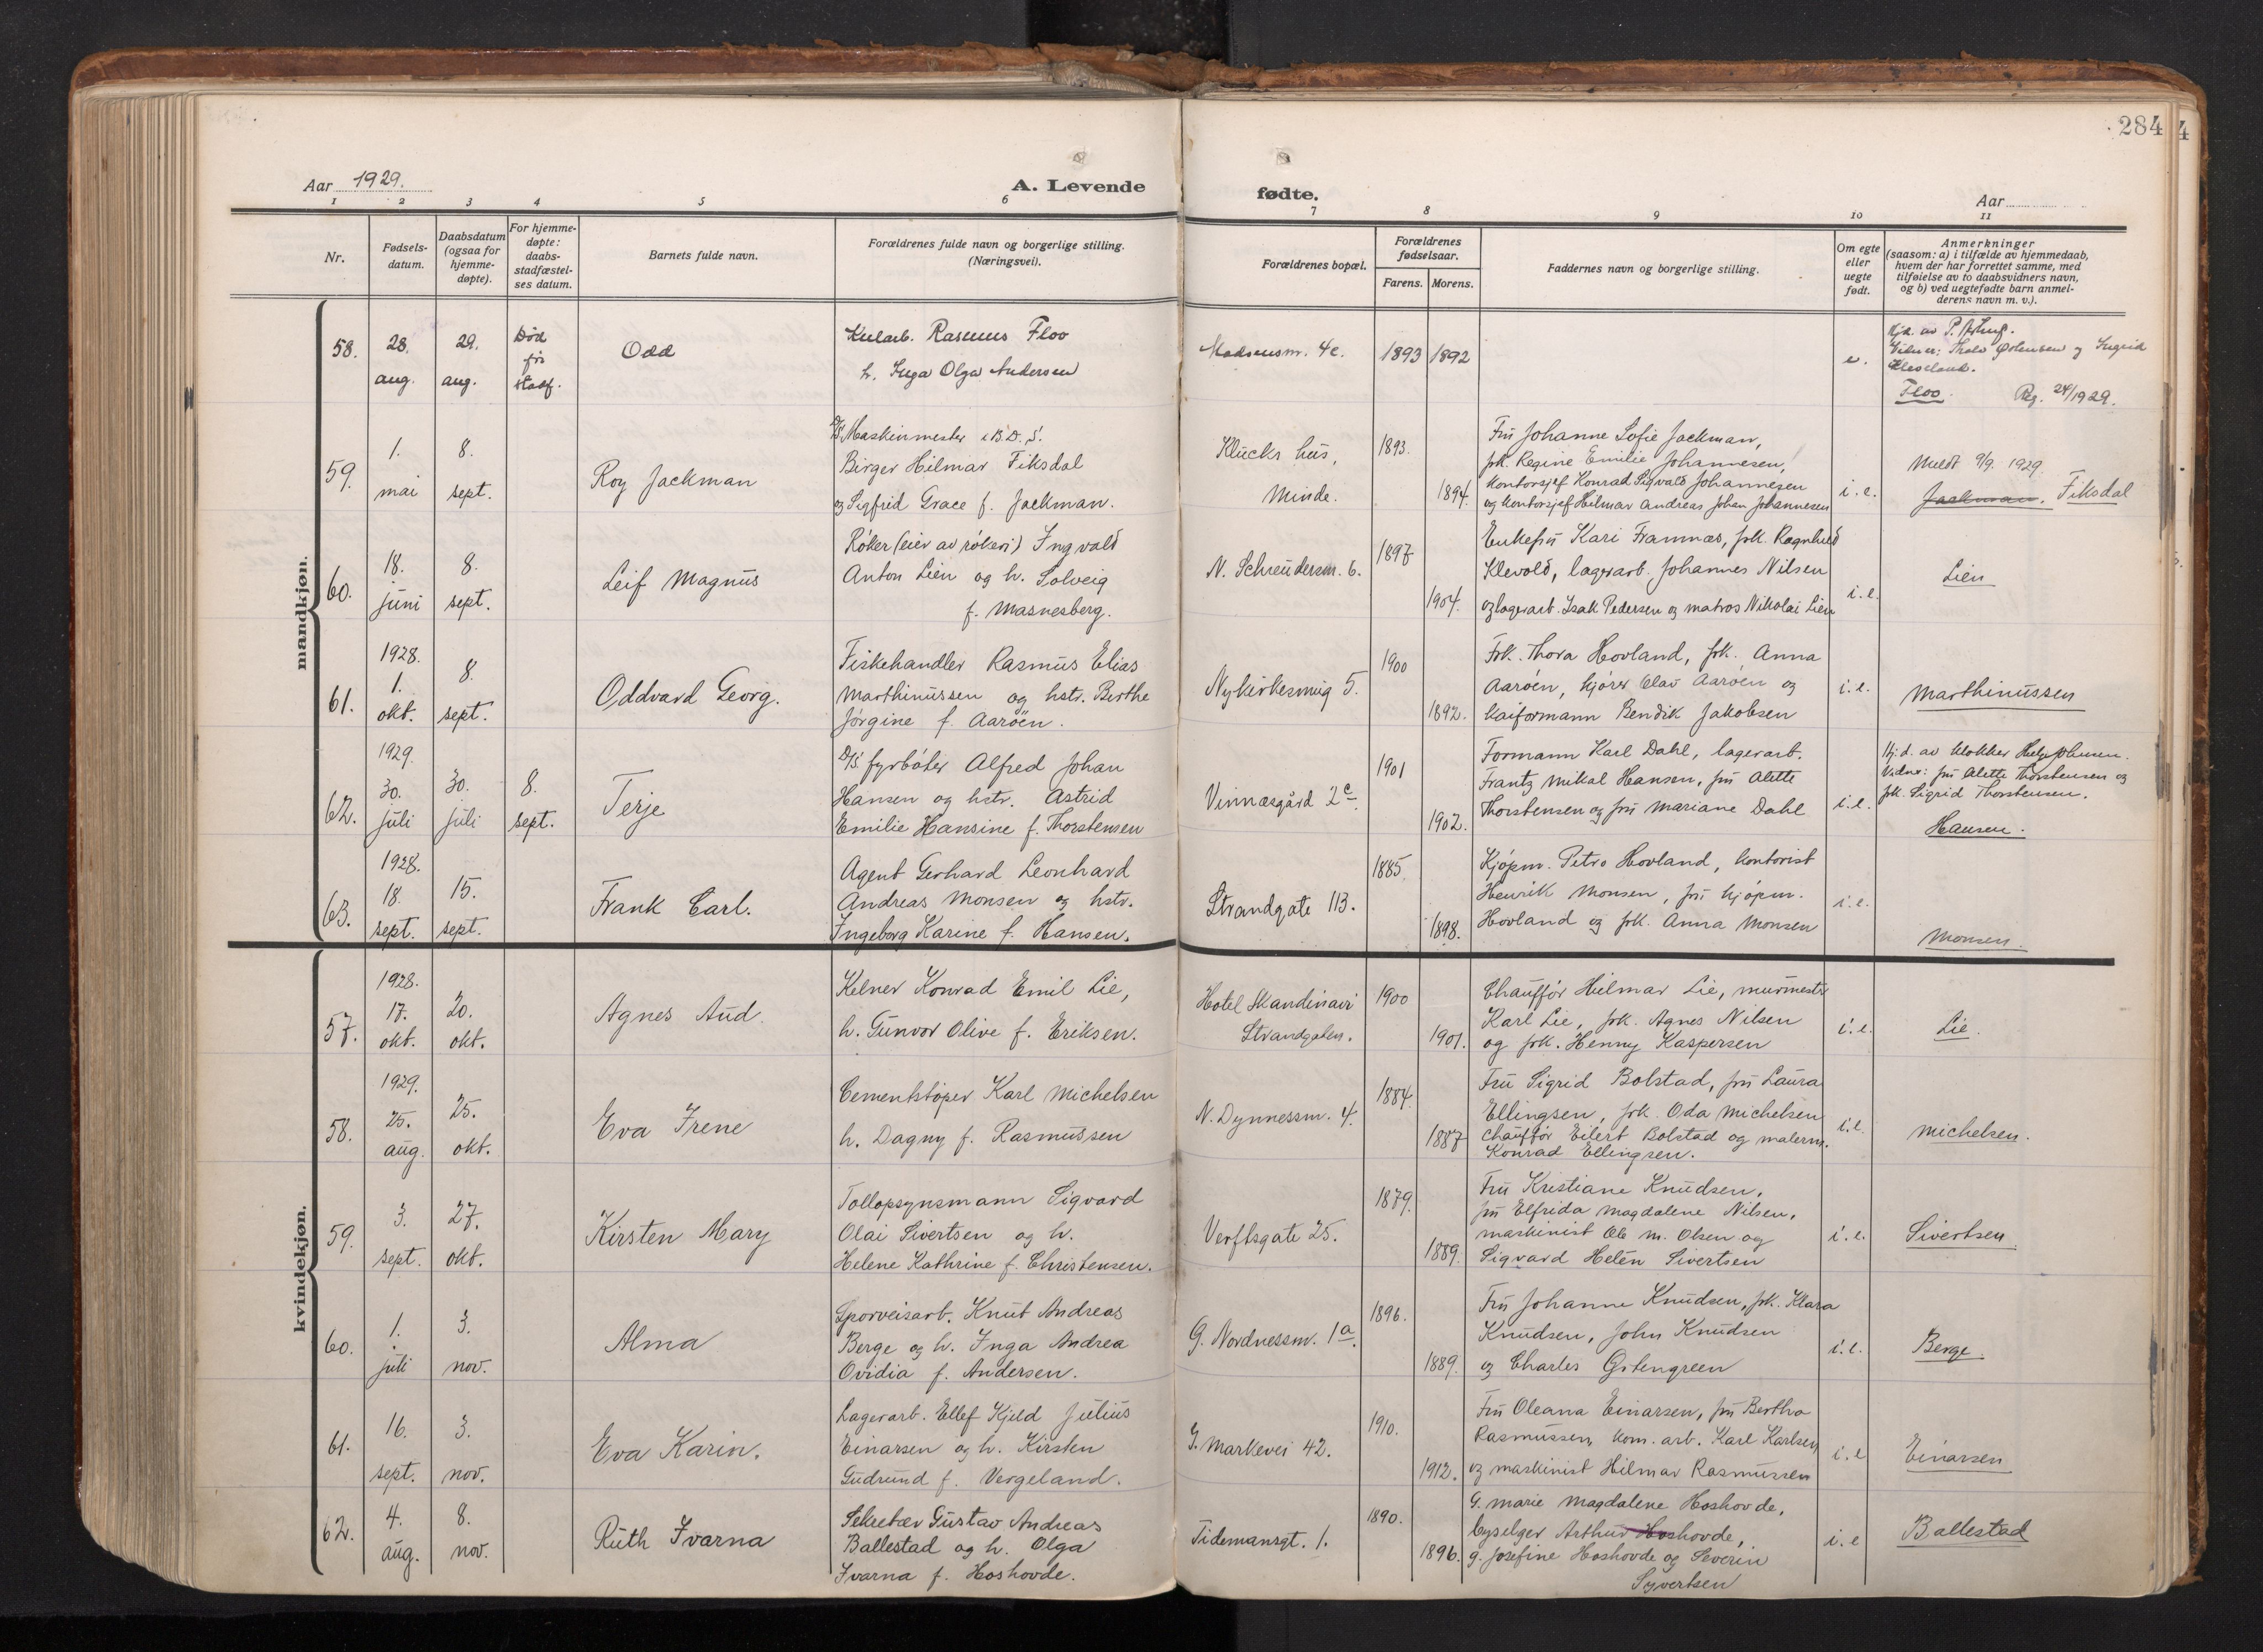 284
4
Aar 1929.
A. Levende
fødte.
Aar
1 2 3 4 5 6 7 8 9 10 11
Nr.
Fødsels-
datum.
Daabsdatum
(ogsaa for
hjemme-
døpte).
For hjemme-
døpte:
daabs-
stadfæstel-
ses datum.
Barnets fulde navn.
Forældrenes fulde navn og borgerlige stilling.
(Næringsvei).
Forældrenes bopæl.
Forældrenes
fødselsaar.
Farens. Morens.
Faddernes navn og borgerlige stilling.
Om egte
eller
uegte
født.
Anmerkninger
(saasom: a) i tilfælde av hjemmedaab,
hvem der har forrettet samme, med
tilføielse av to daabsvidners navn,
og b) ved uegtefødte barn anmel-
derens navn m. v.).
mandkjøn.
58.
28.
aug.
29.
aug.
Død
før
stadf.
Odd
Rasmus Floo
h. Inga Olga Andersen
Madsensm. 4c.
1893
1892
e.
Hjd. av P.
Øvensen og Ingrid
Kleveland.
Floo. Reg. 24/1929.
59.
1.
mai
8.
sept.
Roy Jackman
D/S Maskinmester i B.D.S.
Birger Hilmar Fiksdal
og Sigfrid Grace f. Jackman.
Klucks hus,
Minde.
1893.
1894.
Fru Johanne Sofie Jackman,
frk. Regine Emilie Johannesen,
kontorsjef Konrad Sigvald Johannesen
og kontorsjef Hilmar Andreas Johan Johannesen
i.e.
Meldt 9/9. 1929.
Jackman. Fiksdal
60.
18.
juni
8.
sept.
Leif Magnus
Røker (eier av røkeri) Ingvald
Anton Lien og h. Solveig
f. Masnesberg.
N. Schreudersm. 6.
1897
1904.
Enkefru Kari Framnæs, frk. Ragnhild
Klevold, lagerarb. Johannes Nilsen
og lagerarb. Isak Pedersen og matros Nikolai Lien
i.e.
Lien
61.
1928.
1.
okt.
8.
sept.
Oddvard Georg.
Fiskehandler Rasmus Elias
Marthinussen og hstr. Berthe
Jørgine f. Aarøen.
Nykirkesmug 5.
1900
1892.
Frk. Thora Hovland, frk. Anna
Aarøen, kjører Olav Aarøen og
kaiformann Bendik Jakobsen
i.e.
Marthinussen
62.
1929.
30.
juli
30.
juli
8.
sept.
Terje
D/S fyrbøter Alfred Johan
Hansen og hstr. Astrid
Emilie Hansine f. Thorstensen
Vinnæsgård 2c.
1901
1902.
Formann Karl Dahl, lagerarb.
Frantz Mikal Hansen, fru Alette
Thorstensen og fru Mariane Dahl
i.e.
Hj.d. av klokker Helge Johnsen.
Vidner: fru Alette Thorstensen og
frk. Sigrid Thorstensen.
Hansen.
63.
1928.
18.
sept.
15.
sept.
Frank Carl.
Agent Gerhard Leonhard
Andreas Monsen og hstr.
Ingeborg Karine f. Hansen.
Strandgate 113.
1885
1898.
Kjøpm. Petro Hovland, kontorist
Henrik Monsen, fru kjøpm.
Hovland og frk. Anna Monsen
i.e.
Monsen.
kvindekjøn.
57.
1928.
17.
okt.
20.
okt.
Agnes Aud.
Kelner Konrad Emil Lie,
h. Gunvor Olive f. Eriksen.
Hotel Skandinavi
Strandgaten.
1900
1901.
Chauffør Hilmar Lie, murmestr
Karl Lie, frk. Agnes Nilsen
og frk. Henny Kaspersen
i.e.
Lie.
58.
1929.
25.
aug.
25.
okt.
Eva Irene
Cementstøper Karl Michelsen
h. Dagny f. Rasmussen
N. Dynnessm. 4.
1884.
1887
Fru Sigrid Bolstad, fru Laura
Ellingsen, frk. Oda Michelsen
chauffør Eilert Bolstad og malerm.
Konrad Ellingsen.
i.e.
Michelsen.
59.
3.
sept.
27.
okt.
Kirsten Mary
Tollopsynsmann Sigvard
Olai Sivertsen og h.
Helene Kathrine f. Christensen.
Verftsgate 25.
1879.
1889.
Fru Kristiane Knudsen,
fru Elfrida Magdalene Nilsen,
maskinist Ole M. Olsen og
Sigvard Helén Sivertsen
i.e.
Sivertsen.
60.
1.
juli
3.
nov.
Alma
Sporveisarb. Knut Andreas
Berge og h. Inga Andrea
Ovidia f. Andersen.
G. Nordnessm. 1a.
1896.
1889.
Fru Johanne Knudsen, frk. Klara
Knudsen, John Knudsen
og Charles Østengreen
i.e.
Berge.
61.
16.
sept.
3.
nov.
Eva Karin.
Lagerarb. Ellef Kjeld Julius
Einarsen og h. Kirsten
Gudrund f. Vergeland.
J. Markevei 42.
1910.
1912.
Fru Oleana Einarsen, fru Bertha
Rasmussen, kom. arb. Karl Karlsen
og maskinist Hilmar Rasmussen
i.e
Einarsen
62.
4.
aug.
8.
nov.
Ruth Ivarna
Sekretær Gustav Andreas
Ballestad og h. Olga
Ivarna f. Hoshovde.
Tidemansgt. 1.
1890.
1896.
G. Marie Magdalene Hoshovde,
Arthur Hoshovde,
g. Josefine Hoshovde og Severin
Syvertsen
i.e
Ballestad